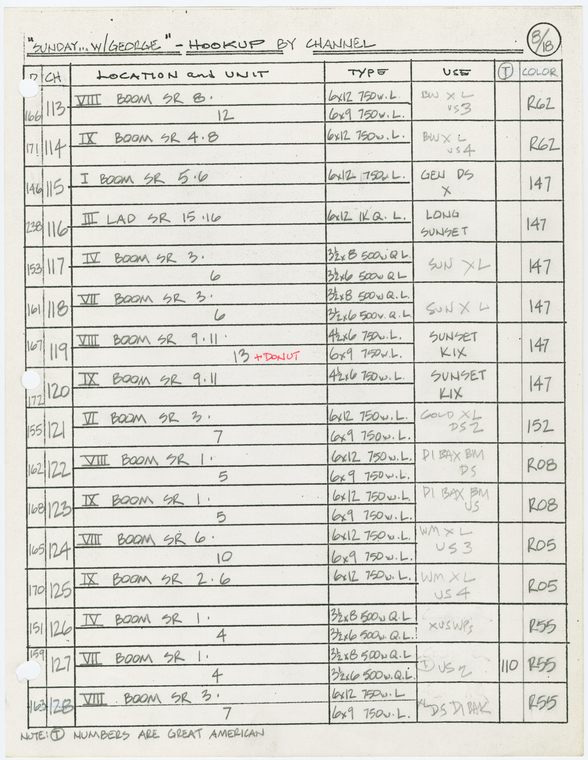 "SUNDAY... W/GEORGE" - HOOKUP BY CHANNEL 8/18
D CH LOCATION and UNIT TYPE USE Ⓘ COLOR
166 113 VIII BOOM SR 8· 6x12 750W.L. BW XL R62
12 6x9 750W.L. US3
171 114 IX BOOM SR 4·8 6x12 750W.L. BW XL R62
US4
146 115 I BOOM SR 5·6 6x12 750W.L. GEN DS 147
X
238 116 III LAD SR 15·16 6x12 1K Q. L. LONG 147
SUNSET
153 117 IV BOOM SR 3· 3½x8 500W Q L SUN XL 147
6 3½x6 500W.Q L
161 118 VII BOOM SR 3· 3½x8 500W.Q L SUN XL 147
6 3½x6 500W.Q L
167 119 VIII BOOM SR 9·11· 4½x6 750W.L. SUNSET 147
13 + DONUT 6x9 750W.L. KIX
172 120 IX BOOM SR 9·11 4½x6 750W.L. SUNSET 147
KIX
155 121 VI BOOM SR 3· 6x12 750W.L. GOLD XL 152
7 6x9 750W.L. DS2
162 122 VIII BOOM SR 1· 6x12 750W.L. DI BAX BM R08
5 6x9 750W.L. DS
168 123 IX BOOM SR 1· 6x12 750W.L. DI BAX BM R08
5 6x9 750W.L. US
165 124 VIII BOOM SR 6· 6x12 750W.L. WM XL R05
10 6x9 750W.L. US3
170 125 IX BOOM SR 2·6 6x12 750W.L. WM XL R05
US4
151 126 IV BOOM SR 1· 3½x8 500W.Q.L R55
4 3½x6 500W.Q.L.
159 127 VII BOOM SR 1· 3½x8 500W.Q.L D US2 110 R55
4 3½x6 500W.Q.L.
163 128 VIII BOOM SR 3· 6x12 750W.L. XL R55
7 6x9 750W.L. DS DI BAK
NOTE: Ⓘ NUMBERS ARE GREAT AMERICAN